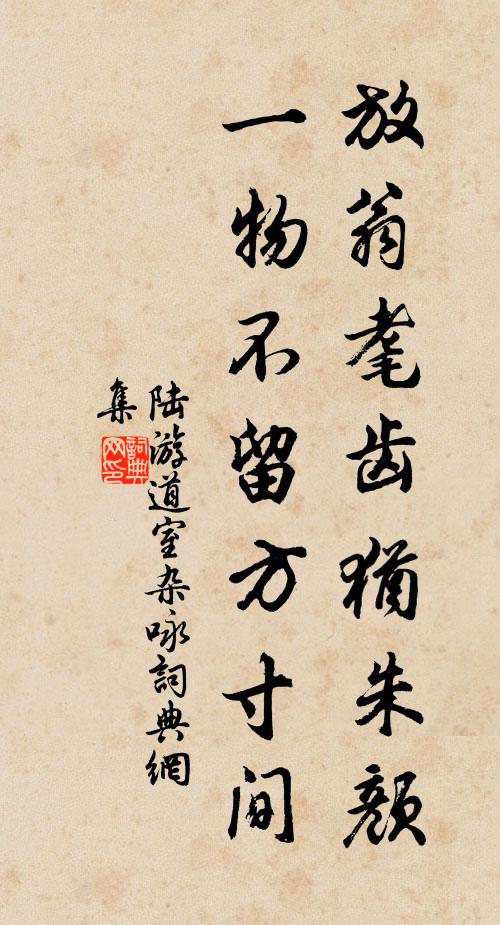 放翁耄齿犹朱颜
一物不留方寸间
陆游道室杂咏詞典網
集
詞典网印